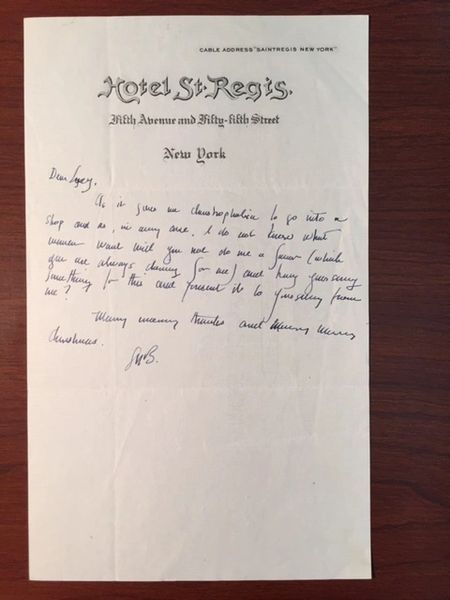 CABLE ADDRESS "SAINTREGIS NEW YORK"
Hotel St. Regis.
Fifth Avenue and Fifty-fifth Street
New York
Dear
As it gives me claustrophobia to go into a
shop and as, in any case, I do not know what
women want will you not do me a favor (which
you are always doing for me) and buy yourself
something for this and present it to yourself from
me?
Many many thanks and Merry Merry
Christmas.